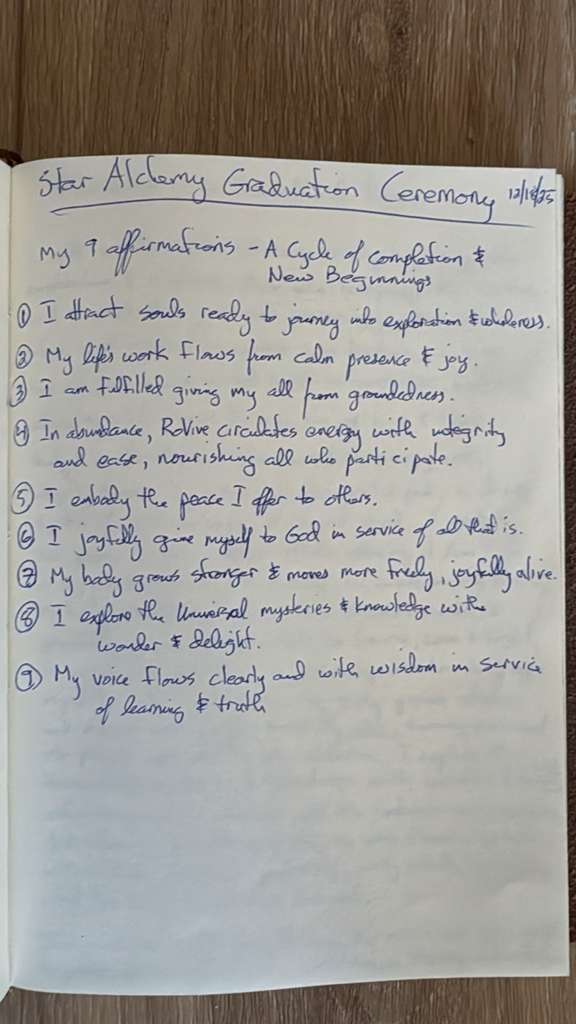 Star Alchemy Graduation Ceremony 12/18/25
My 9 affirmations - A Cycle of completion &
New Beginnings
① I attract souls ready to journey into exploration & wholeness.
② My life's work flows from calm presence & joy.
③ I am fulfilled giving my all from groundedness.
④ In abundance, RoVive circulates energy with integrity
and ease, nourishing all who participate.
⑤ I embody the peace I offer to others.
⑥ I joyfully give myself to God in service of all that is.
⑦ My body grows stronger & moves more freely, joyfully alive.
⑧ I explore the Universal mysteries & knowledge with
wonder & delight.
⑨ My voice flows clearly and with wisdom in service
of learning & truth